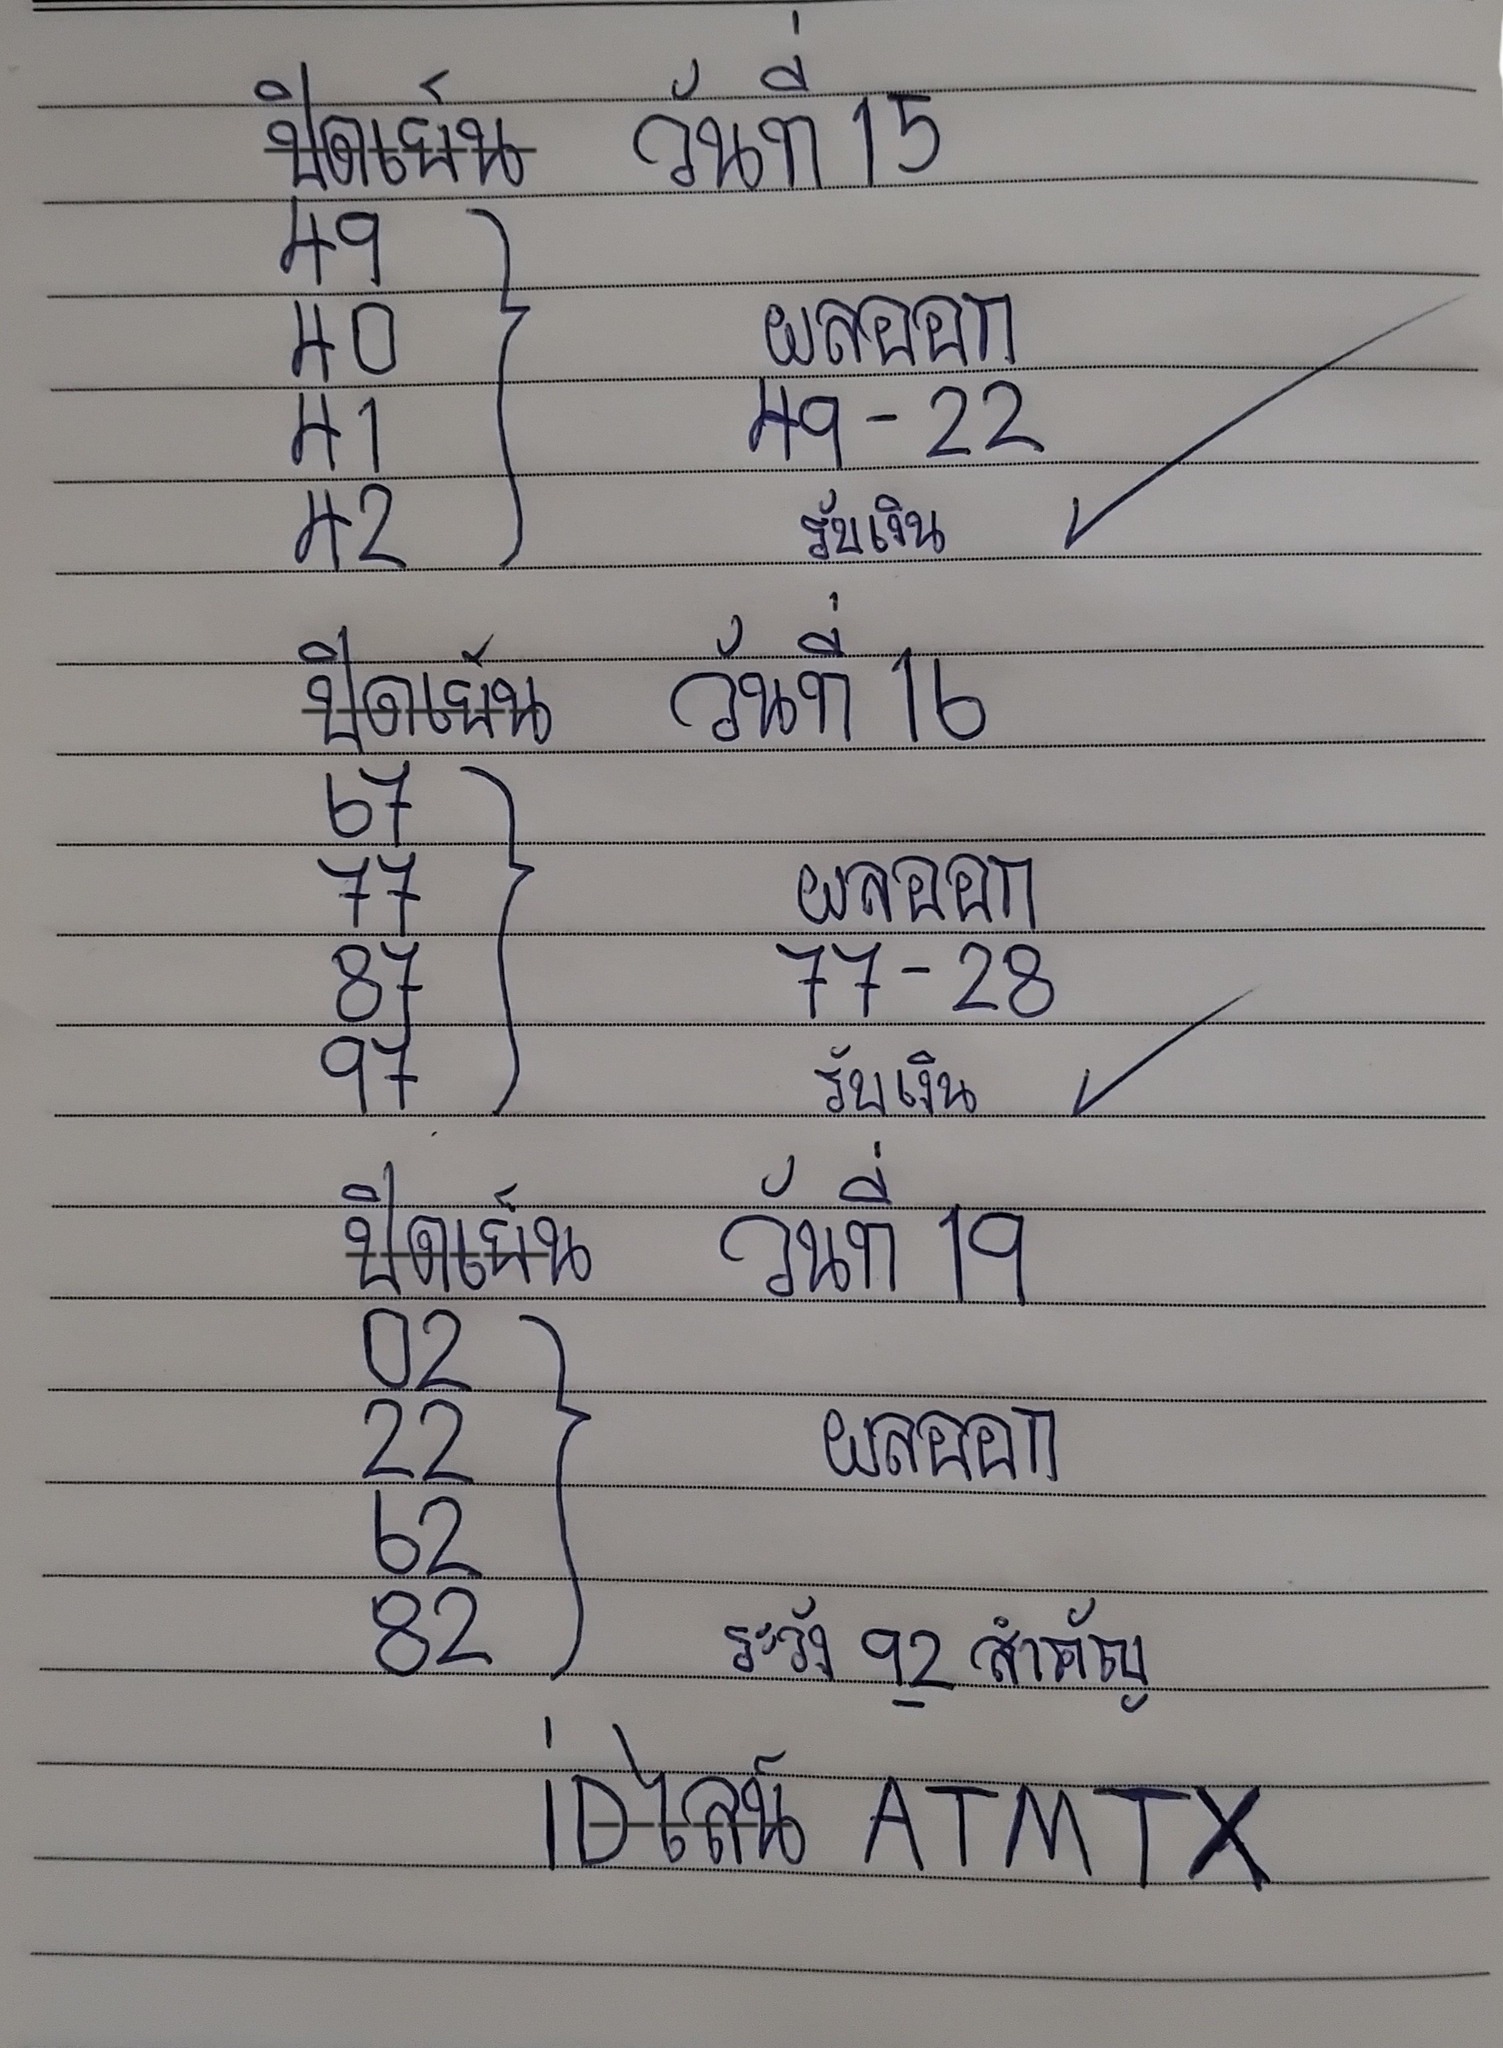 ปิดเย็น วันที่ 15
49
40
41
42
ผลออก
49-22
รับเงิน
ปิดเย็น วันที่ 16
67
77
87
97
ผลออก
77-28
รับเงิน
ปิดเย็น วันที่ 19
02
22
62
82
ผลออก
ระวัง 92 สำคัญ
iDไลน์ ATMTX